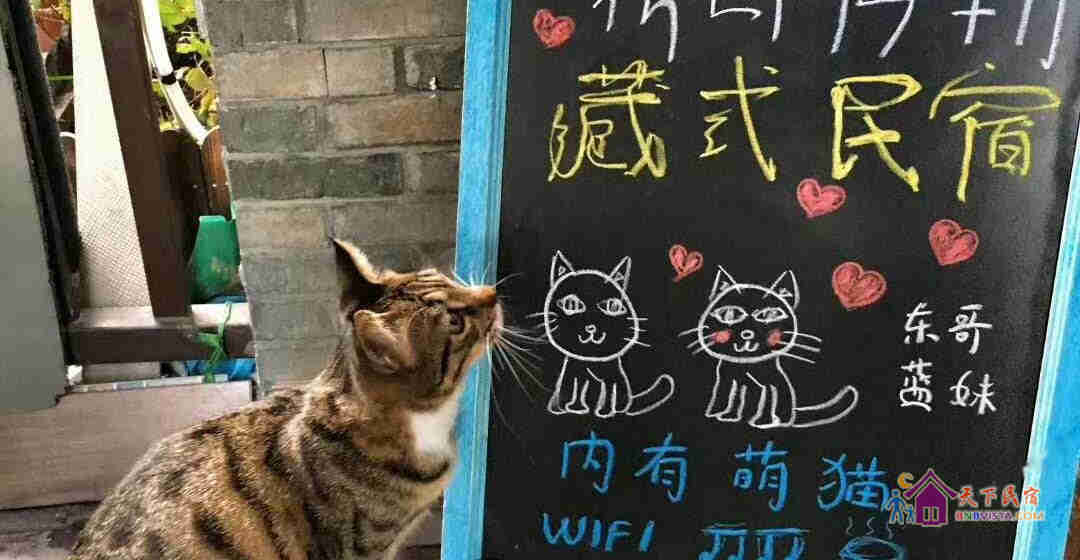 藏式民宿
东哥
蓝妹
内有萌猫
WIFI
天下民宿
BNBVISTA.COM